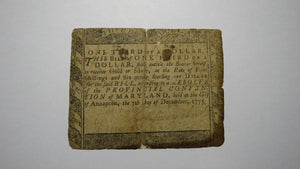 ONE THIRD OF A DOLLAR.
THIS Bill of ONE THIRD OF A
DOLLAR, shall entitle the Bearer hereof
to receive Gold or Silver, at the Rate of Four
Shillings and Six-pence Sterling per DOLLAR
for the said BILL, according to a RESOLVE
of the PROVINCIAL CONVEN-
TION of MARYLAND, held at the City
of Annapolis, the 7th Day of December, 1775.